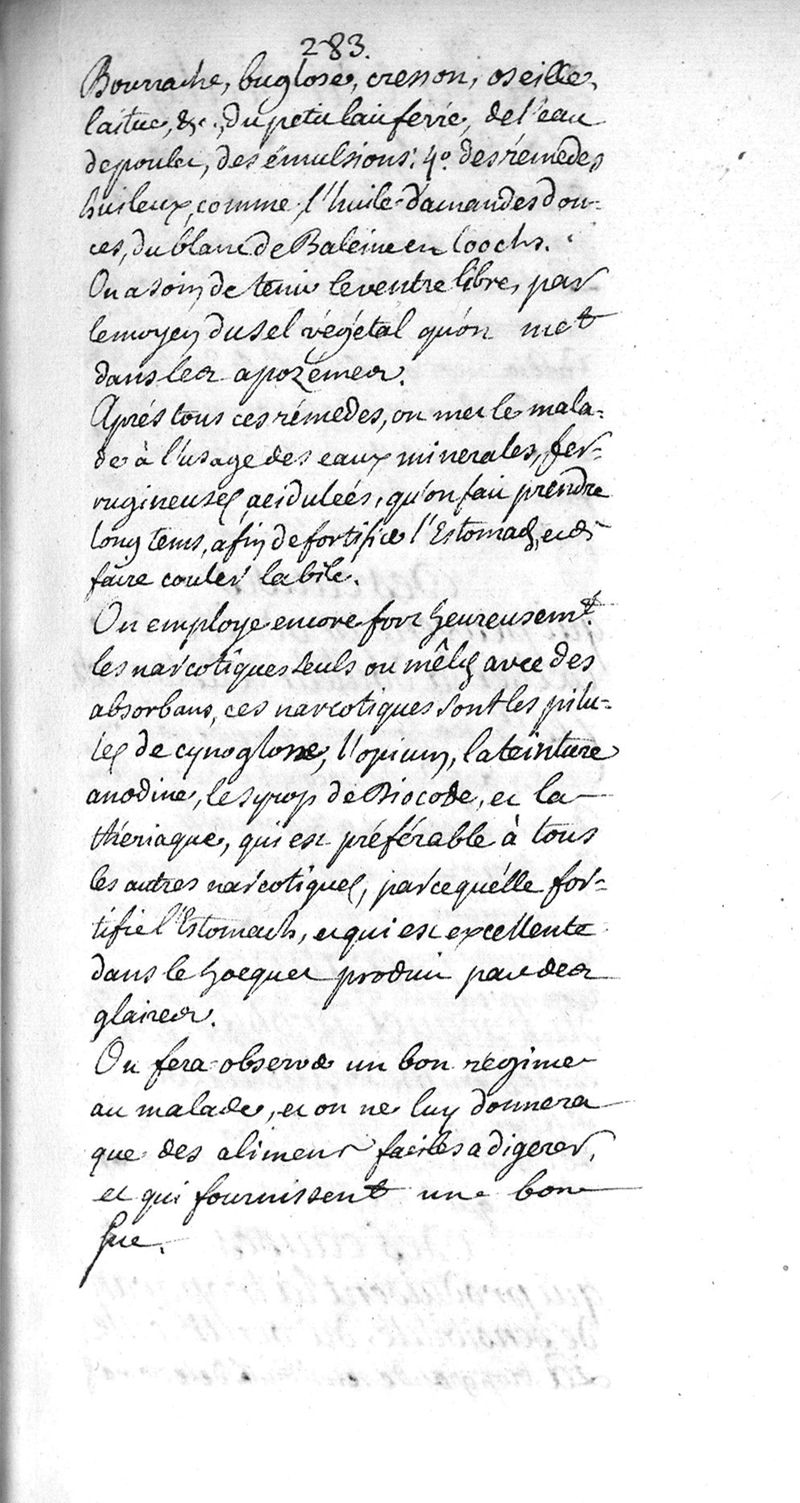 283.
Bourrache, buglose, cresson, oseille,
laitue, &c., du petit lait ferré, de l'eau
de poulet, des émulsions: 4º. des rémedes
huileux, comme l'huile d'amandes dou-
ces, du blanc de Baleine en loochs.
On a soin de tenir le ventre libre, par
le moyen du sel végétal qu'on met
dans les apozémes.
Aprés tous ces rémedes, on met le mala-
de à l'usage des eaux minerales, fer-
rugineuses, acidulées, qu'on fait prendre
long tems, afin de fortifier l'Estomach, et de
faire couler la bile.
On employe encore fort heureusemt.
les narcotiques seuls ou mêlés avec des
absorbans, ces narcotiques sont les pilu-
les de cynoglosse, l'opium, la teinture
anodine, le syrop de Diocode, et la
thériaque, qui est préférable à tous
les autres narcotiques, parce qu'élle for-
tifie l'Estomach, et qui est excellente
dans le hoequet produit par des
glaires.
On fera observer un bon régime
au malade, et on ne luy donnera
que des alimens faciles a digerer,
et qui fournissent une bon
suc.